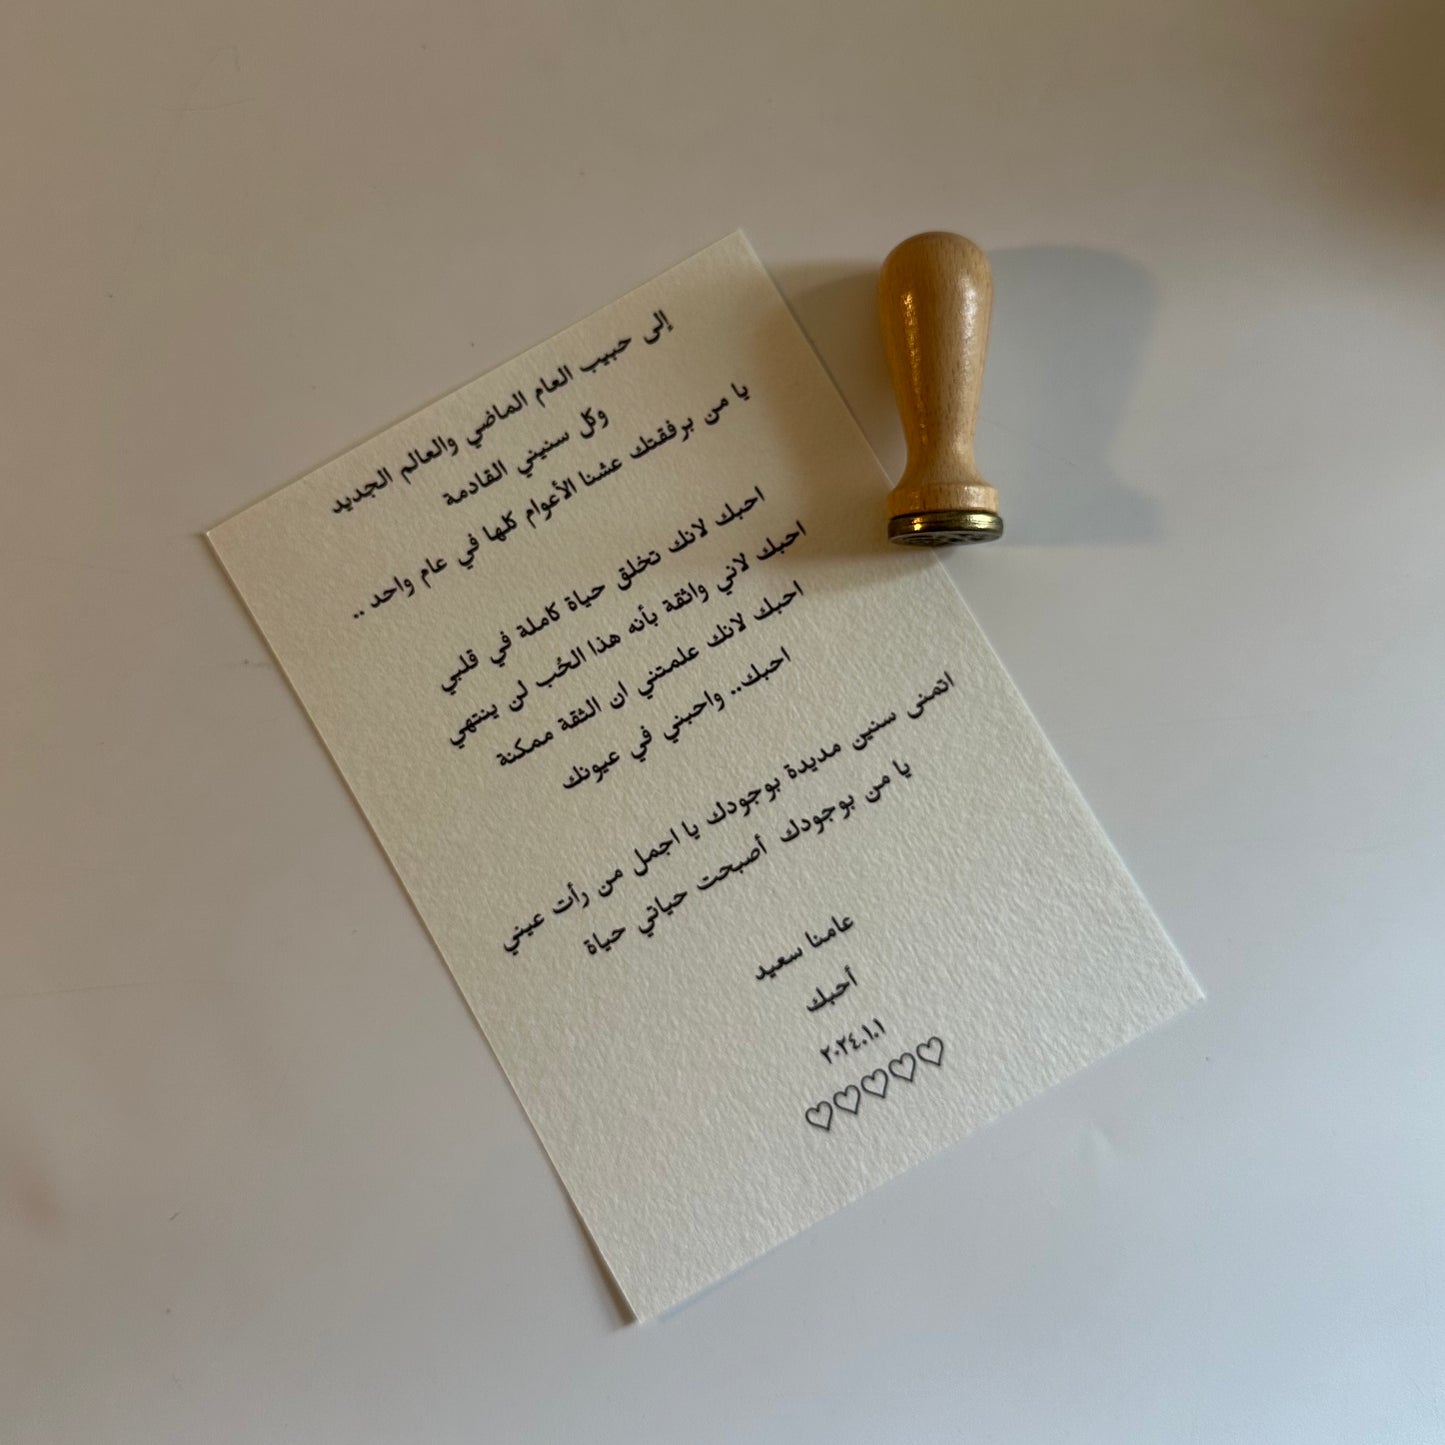 إلى حبيب العام الماضي والعالم الجديد
وكل سنيني القادمة
يا من برفقتك عشنا الأعوام كلها في عام واحد ..
احبك لانك تخلق حياة كاملة في قلبي
احبك لاني واثقة بأنه هذا الحُب لن ينتهي
احبك لانك علمتني ان الثقة ممكنة
احبك.. واحبني في عيونك
اتمنى سنين مديدة بوجودك يا اجمل من رأت عيني
يا من بوجودك أصبحت حياتي حياة
عامنا سعيد
أحبك
٢٠٢٤.١.١
♡♡♡♡♡